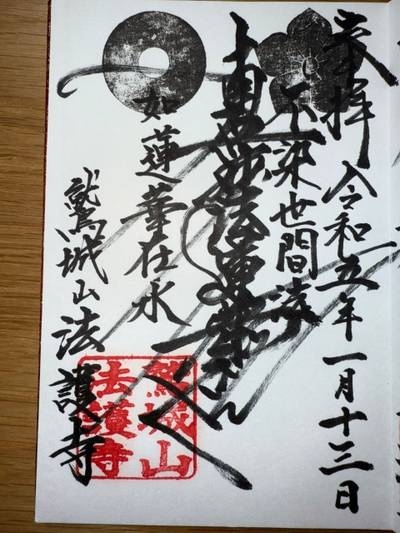 奉拝 令和五年一月十三日
不染世間法
南無妙法蓮華経
如蓮華在水
鷲城山法護寺
鷲城山
法護寺